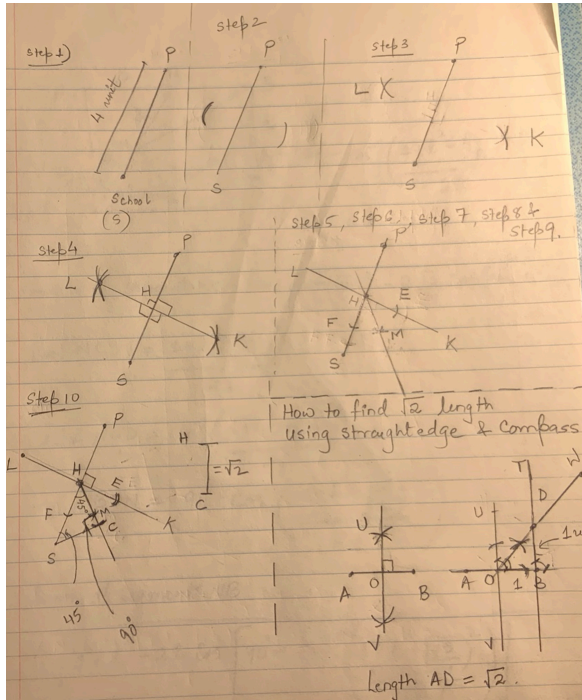 Step 1)
P
4 unit
School
(S)
step 2
P
S
step 3
P
L
K
S
Step 4
P
L
H
K
S
step 5, step 6, step 7, step 8 &
step 9.
P
L
H
E
F
M
K
S
Step 10
P
L
H
45°
E
F
M
C
K
S
45°
90°
H
= √2
C
How to find √2 length
using straight edge & Compass
U
A
O
B
V
T
W
U
D
A
O
1
B
V
Length AD = √2.